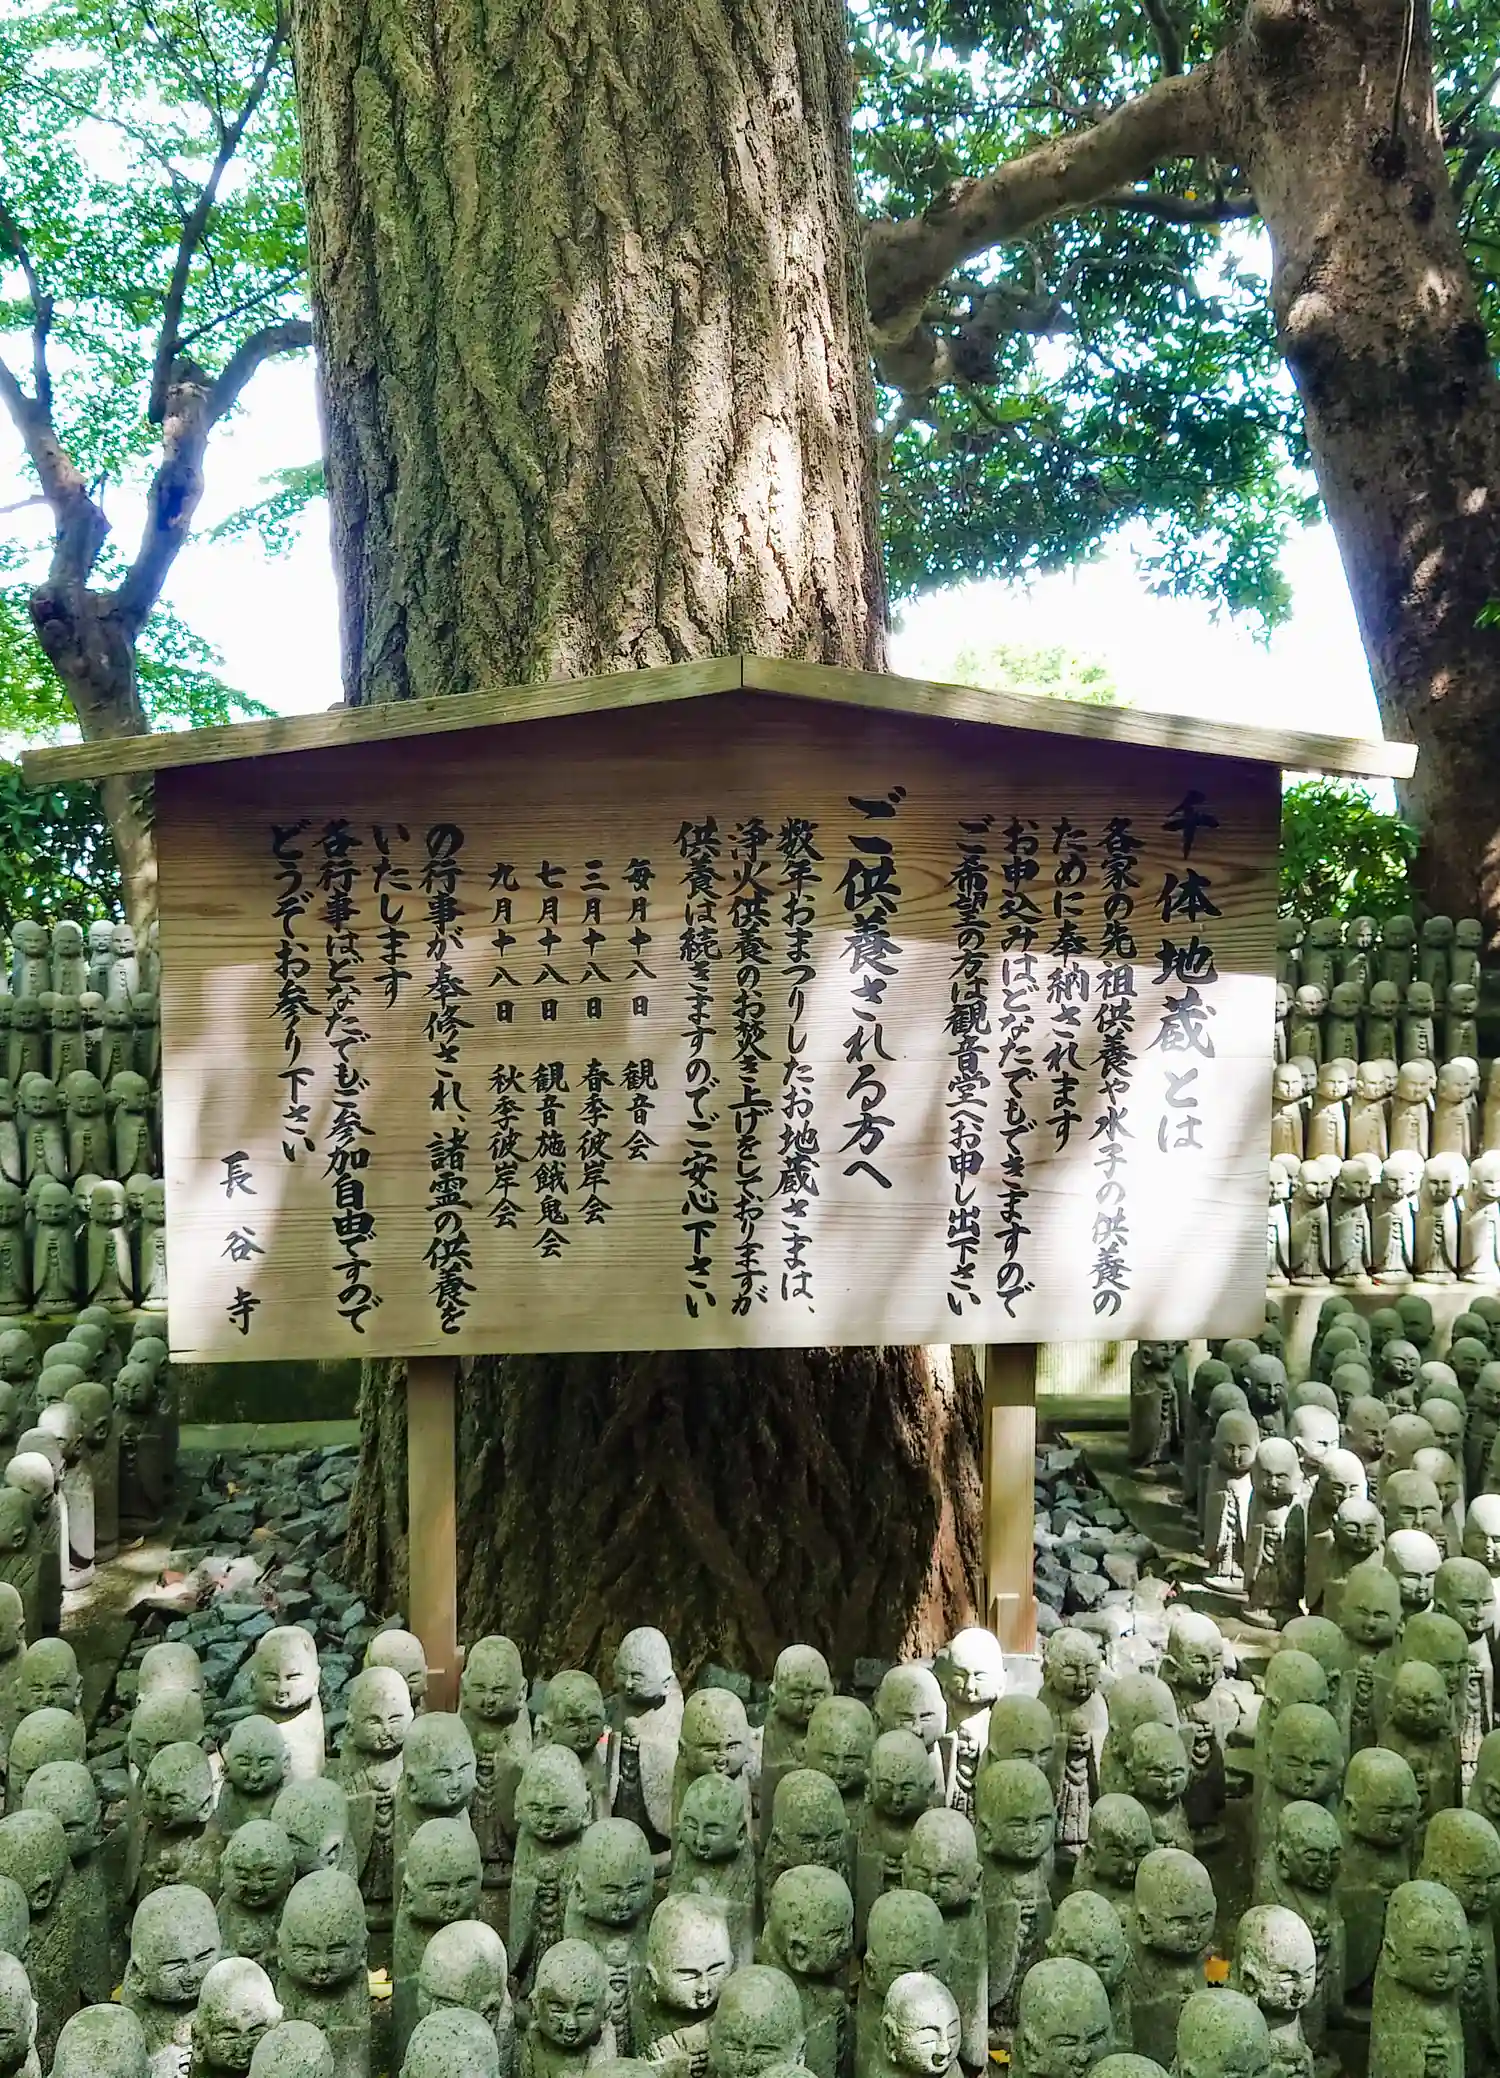 千体地蔵とは
各家の先祖供養や水子の供養の
ために奉納されます
お申込みはどなたでもできますので
ご希望の方は観音堂へお申し出下さい
ご供養される方へ
数年おまつりしたお地蔵さまは、
浄火供養のお焚き上げをしておりますが
供養は続きますのでご安心下さい
毎月十八日 観音会
三月十八日 春季彼岸会
七月十八日 観音施餓鬼会
九月十八日 秋季彼岸会
の行事が奉修され、諸霊の供養を
いたします
各行事はどなたでもご参加自由ですので
どうぞお参り下さい
長谷寺